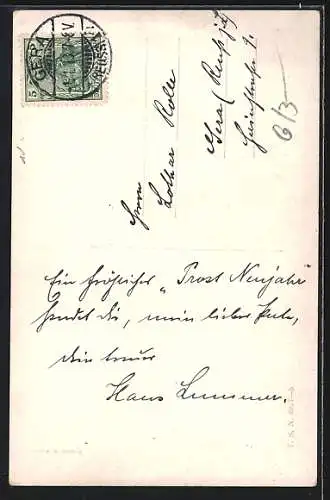 GERA
5
Herrn
Lothar Rolle
Gera (Reuß j/L)
6/3
Ein fröhliches „Prost Neujahr"
sendet Dir, mein lieber
Dein treuer
Hans Lummer.